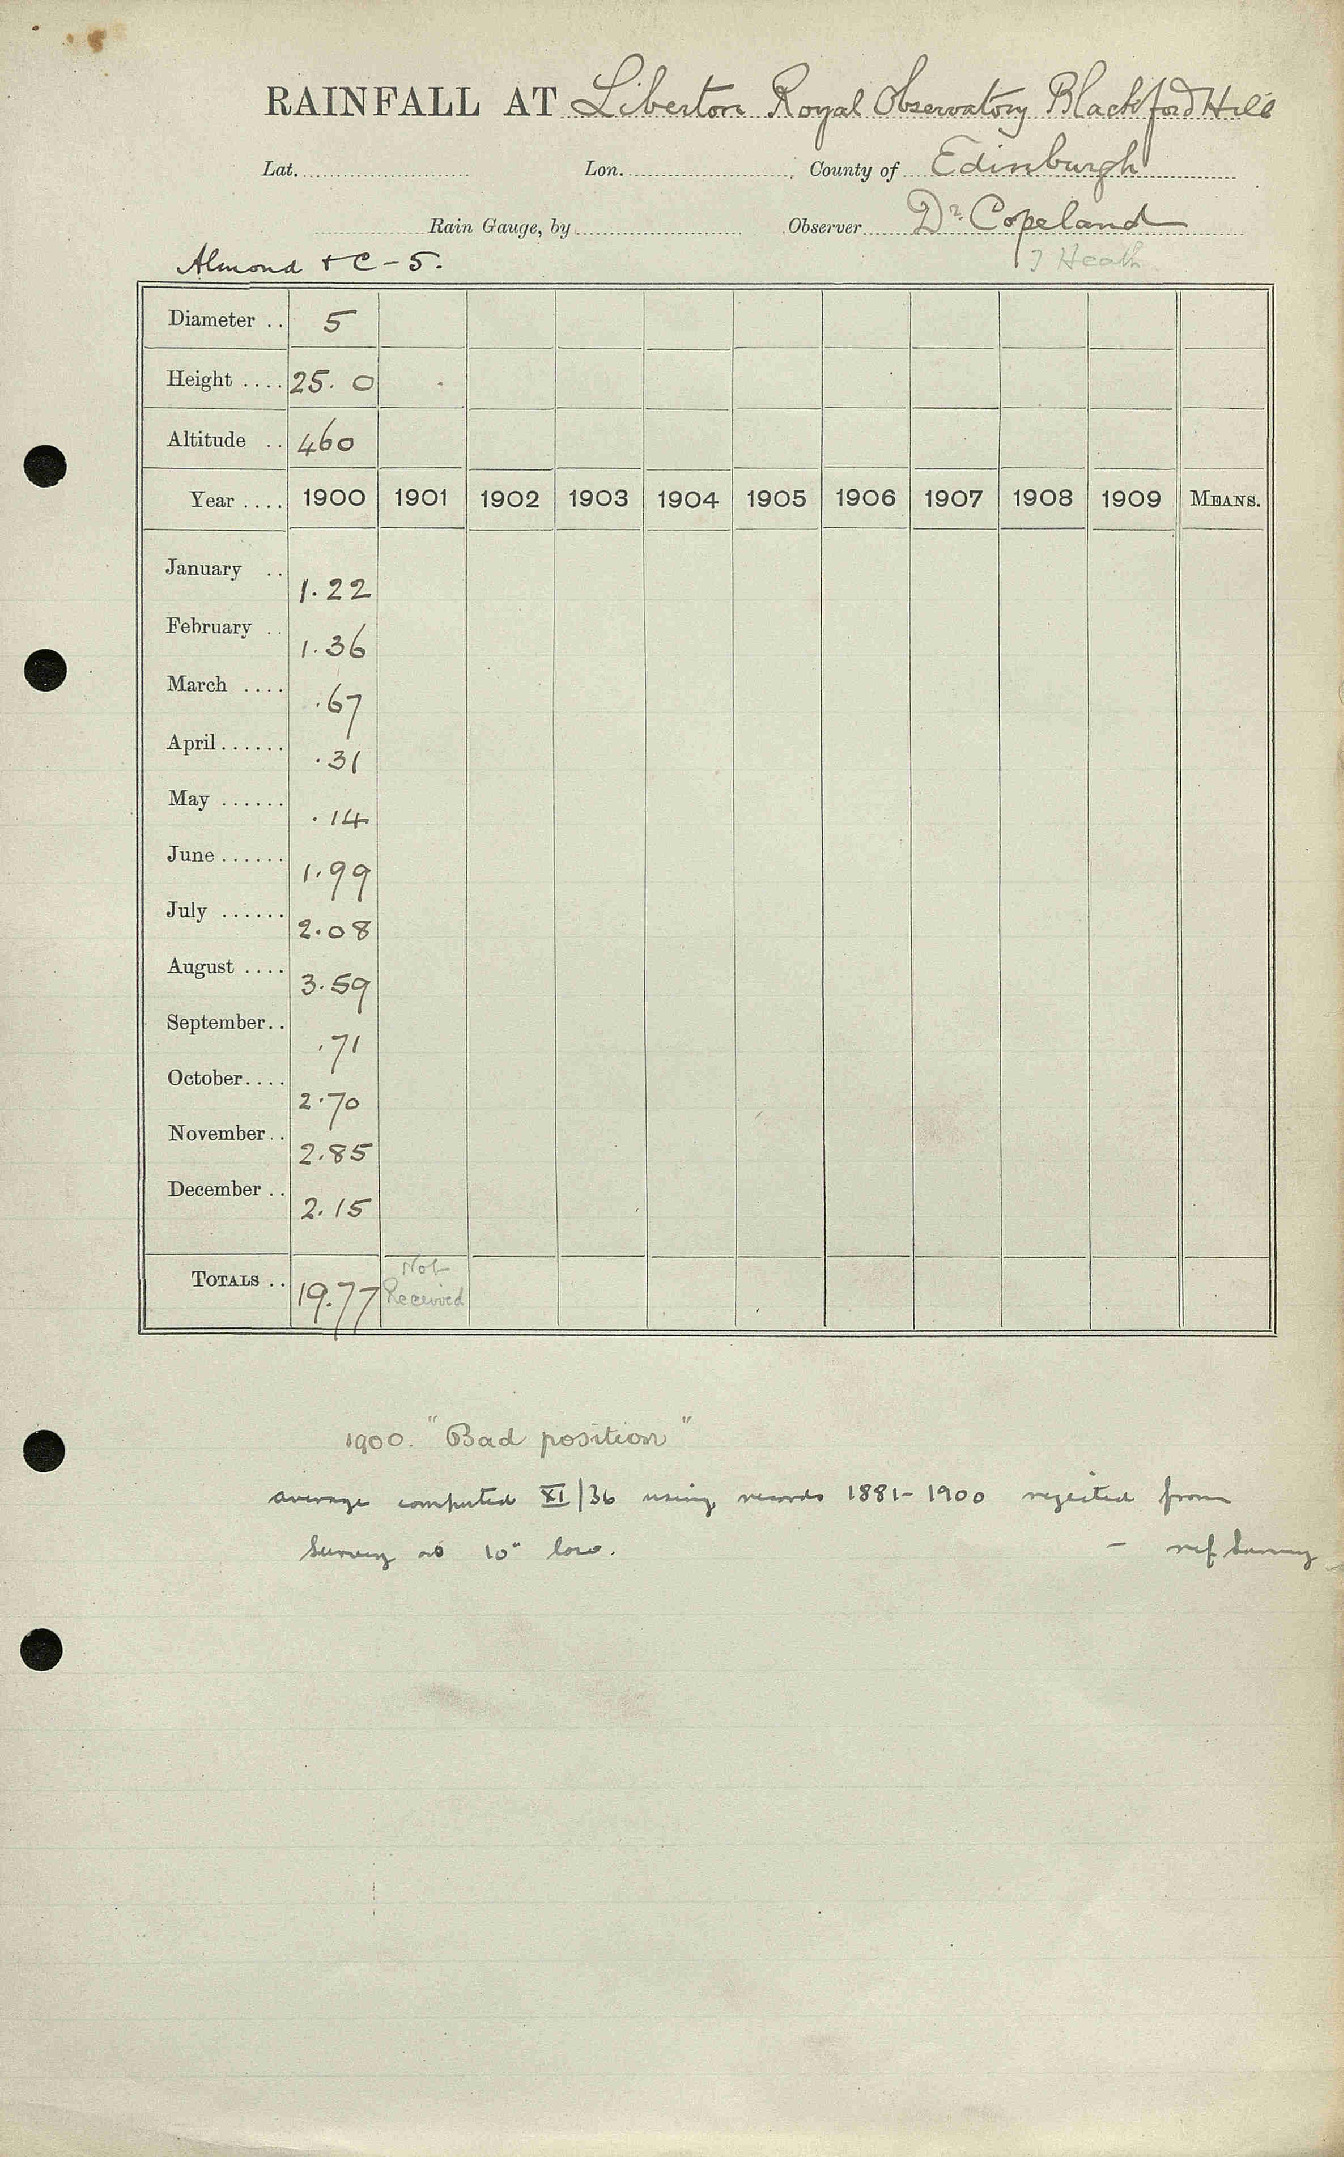 RAINFALL AT Liberton Royal Observatory Blackford Hill
Lat. Lon. County of Edinburgh
Rain Gauge, by Observer Dr. Copeland
Almond & C - 5. J Heath
Diameter .. 5
Height .... 25. 0
Altitude .. 460
Year .... 1900 1901 1902 1903 1904 1905 1906 1907 1908 1909 MEANS.
January .. 1.22
February .. 1.36
March .... .67
April ...... .31
May ...... .14
June ...... 1.99
July ...... 2.08
August .... 3.59
September.. .71
October.... 2.70
November.. 2.85
December .. 2.15
TOTALS .. 19.77 Not Received
1900. "Bad position"
average computed XI/36 using records 1881-1900 rejected from
Survey as 10" low. - ref Survey